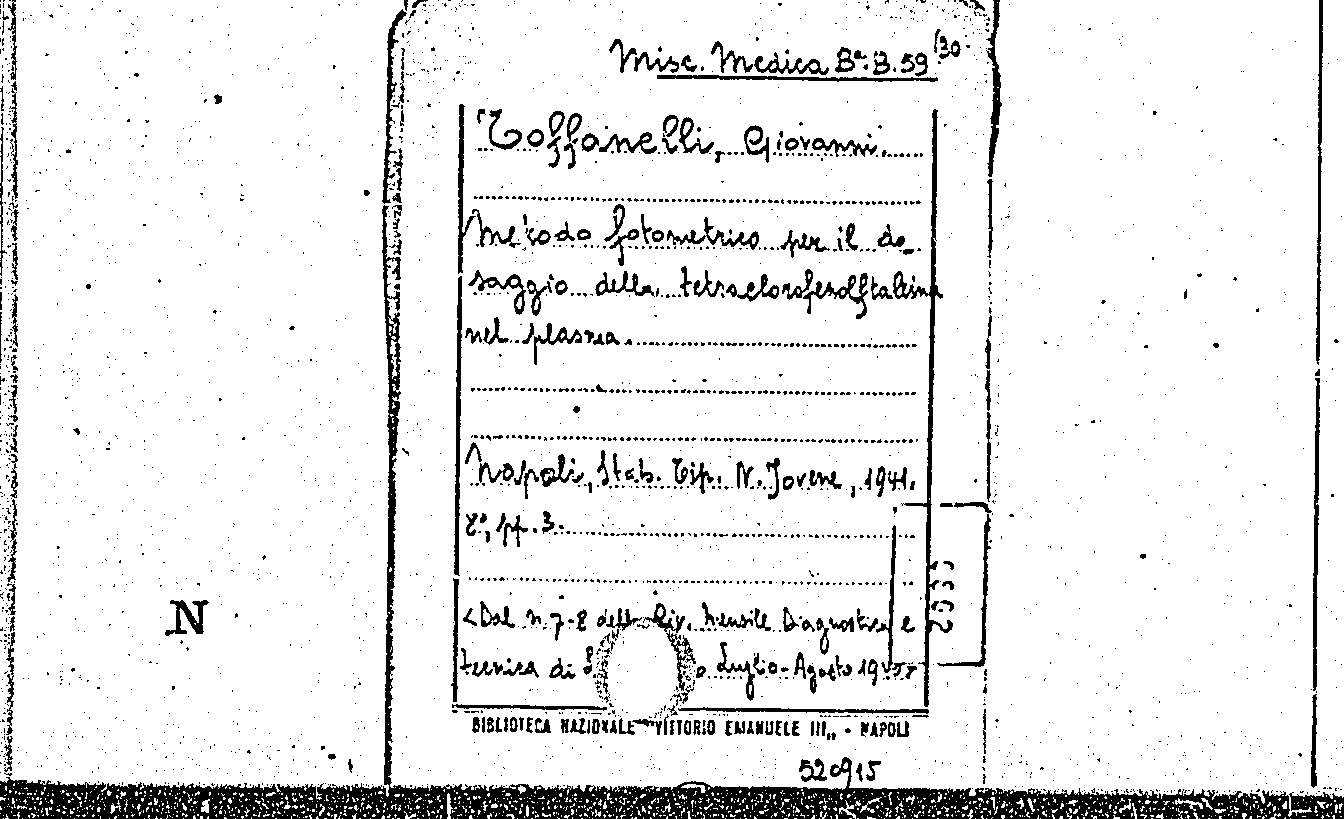 Misc. Medica Bª. B. 59 /30.
Toffanelli, Giovanni.
Metodo fotometrico per il do_
saggio della tetraclorofenolftaleina
nel plasma.
Napoli, Stab. Tip. N. Jovene, 1941.
8°, pp. 3.
N
<Dal n. 7-8 della Riv. Mensile Diagnostica e
tecnica di Luglio-Agosto
BIBLIOTECA NAZIONALE "VITTORIO EMANUELE III„ - NAPOLI
520915